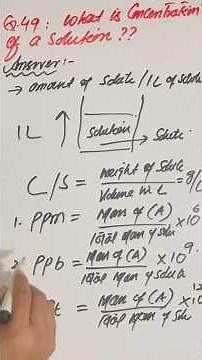 Q.49: What is Concentration
of a Solution ??
Answer:-
→ amount of Solute / 1L of
1L ↑ Solution → Solute
C/S = Weight of Solute / Volume in L = g/L
1. PPm = Mass of (A) / Total Mass of × 10⁶
PPb = Mass of (A) / Total Mass of × 10⁹.
t = Mass of (A) / Total Mass of × 10¹²